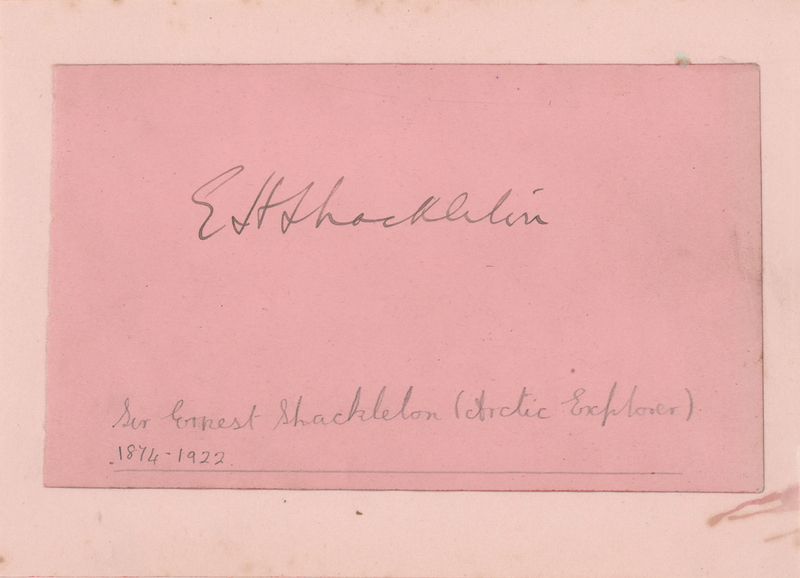 E H Shackleton
Sir Ernest Shackleton (Arctic Explorer)
1874-1922